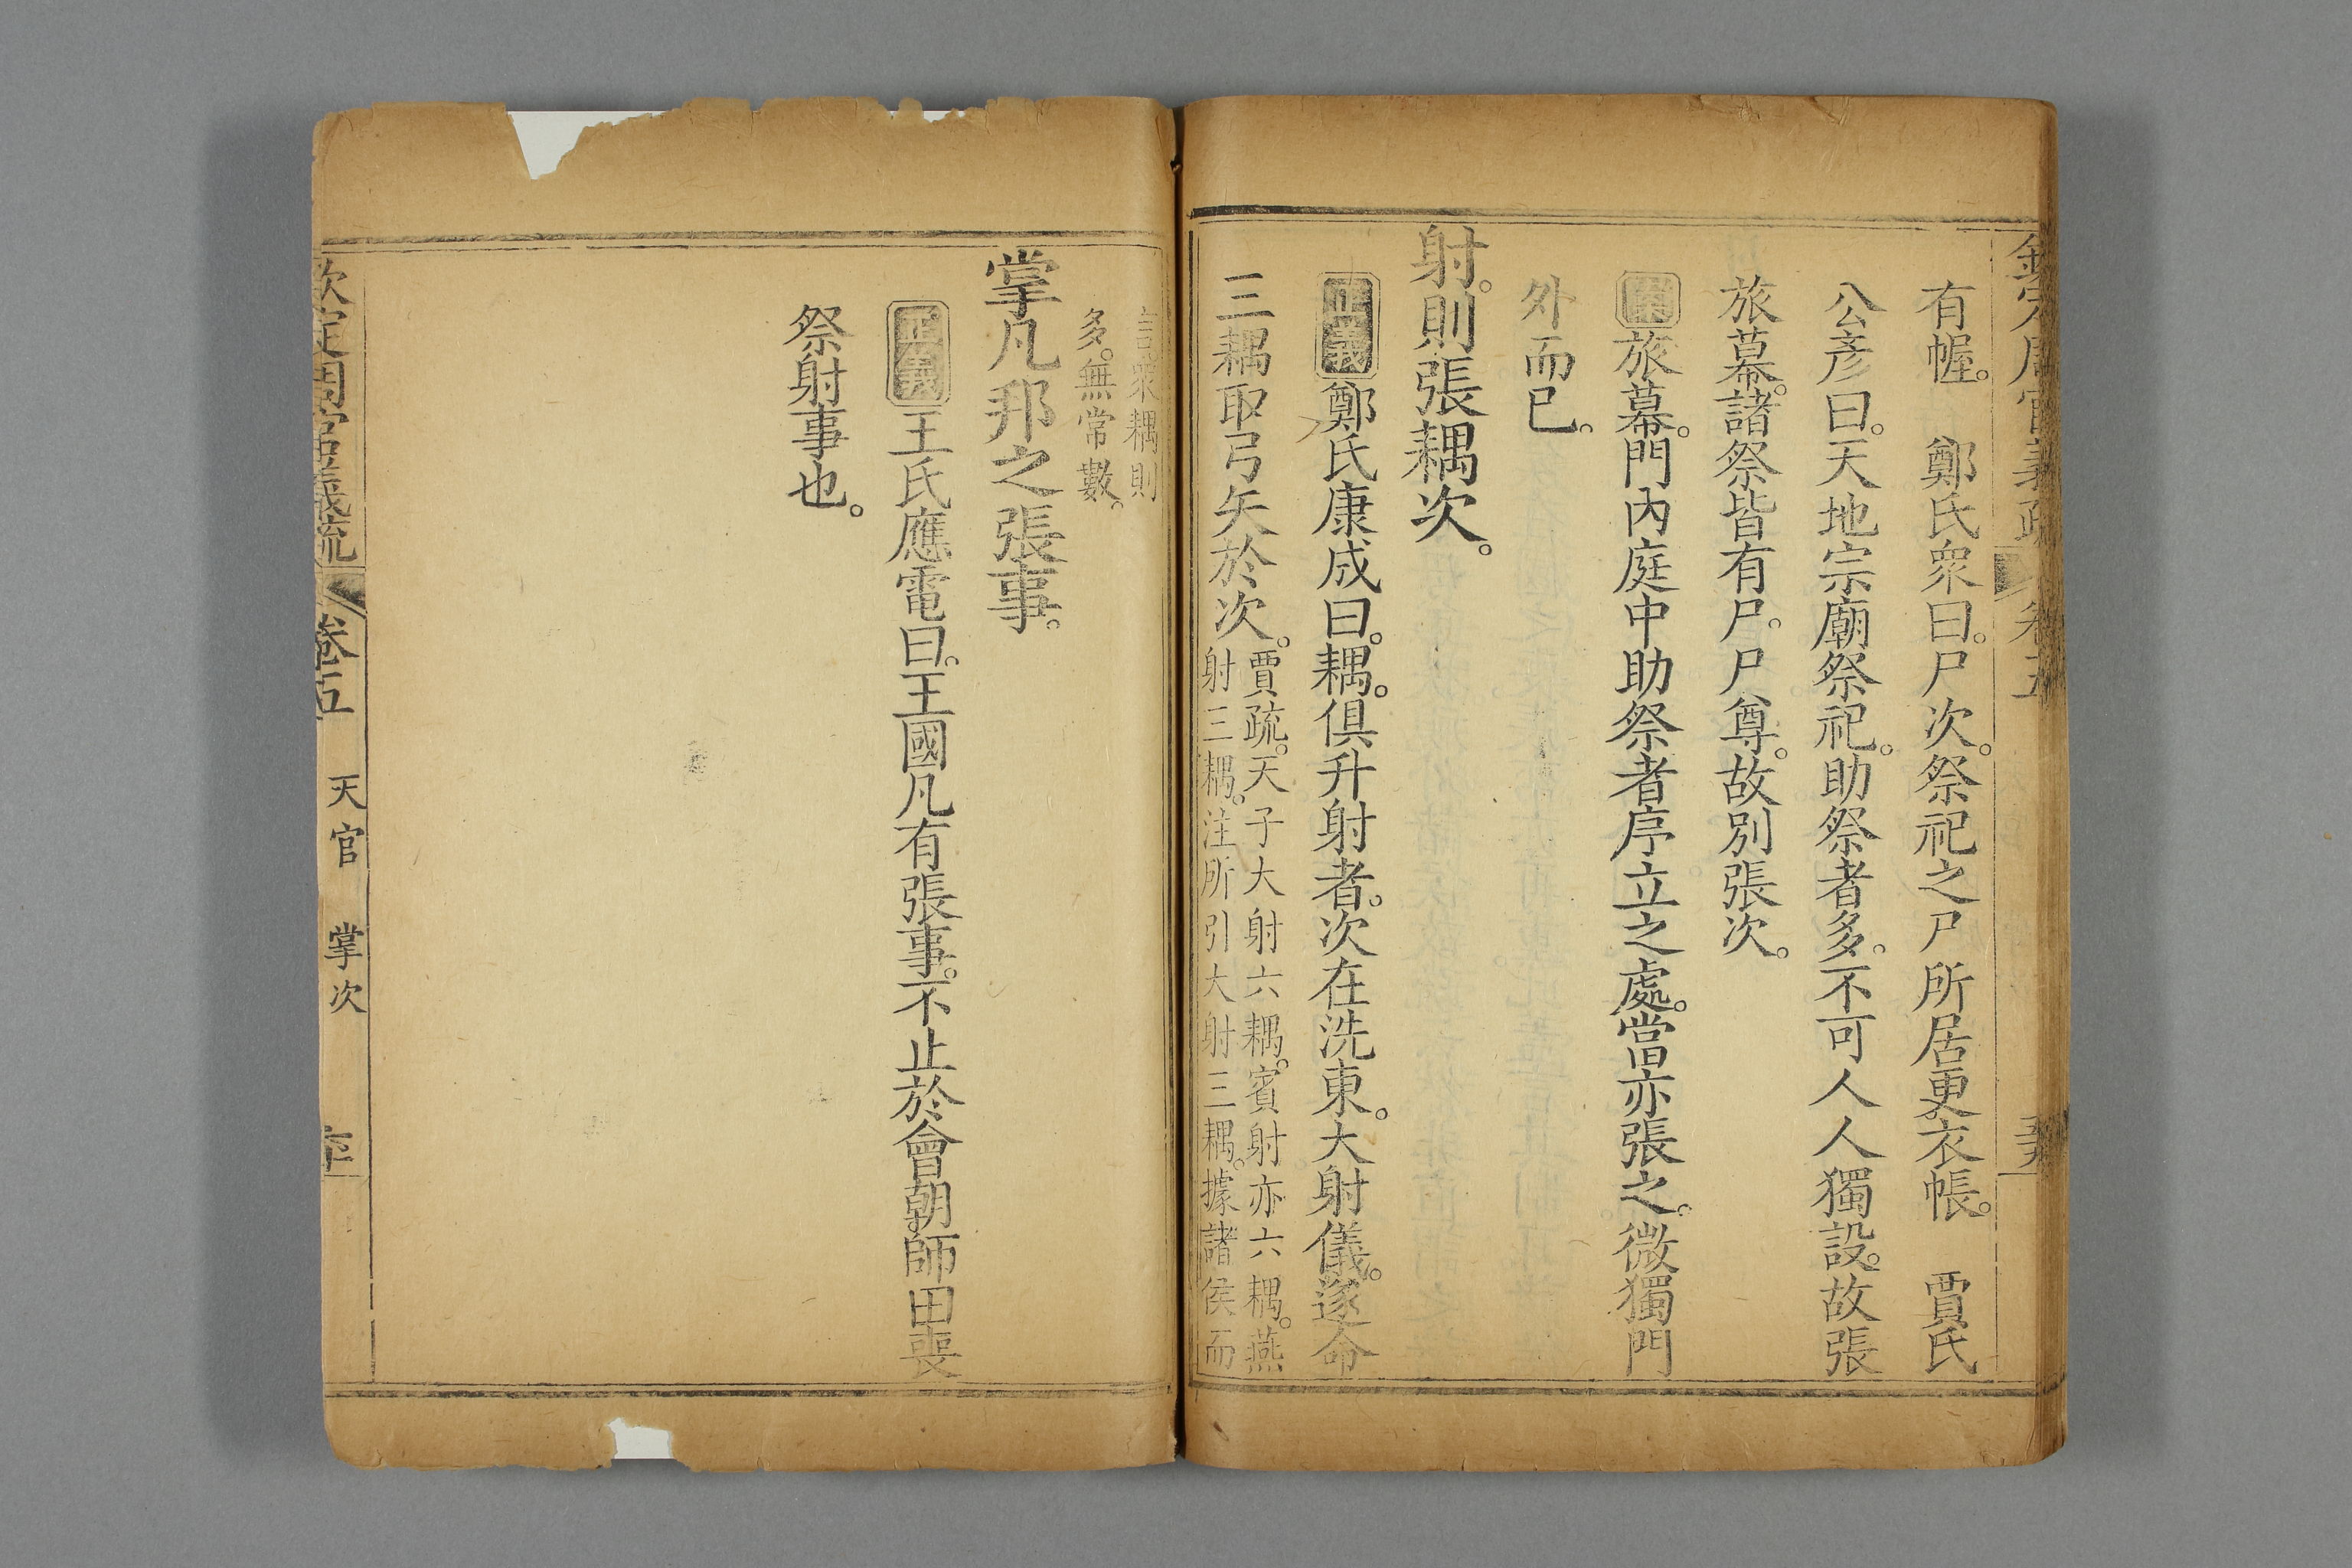 欽定周官義疏 卷五
有幄。　鄭氏衆曰。尸次。祭祀之尸所居更衣帳。　賈氏
公彥曰。天地宗廟祭祀。助祭者多。不可人人獨設。故張
旅幕。諸祭皆有尸。尸尊。故別張次。
案旅幕。門內庭中助祭者序立之處。當亦張之。微獨門
外而已。
射。則張耦次。
正義鄭氏康成曰。耦。俱升射者。次在洗東。大射儀。遂命
三耦取弓矢於次。
賈疏。天子大射六耦。賓射亦六耦。燕
射三耦。注所引大射三耦。據諸侯而
言。衆耦則
多。無常數。
掌凡邦之張事。
正義王氏應電曰。王國凡有張事。不止於會朝師田喪
祭射事也。
欽定周官義疏 卷五 天官 掌次